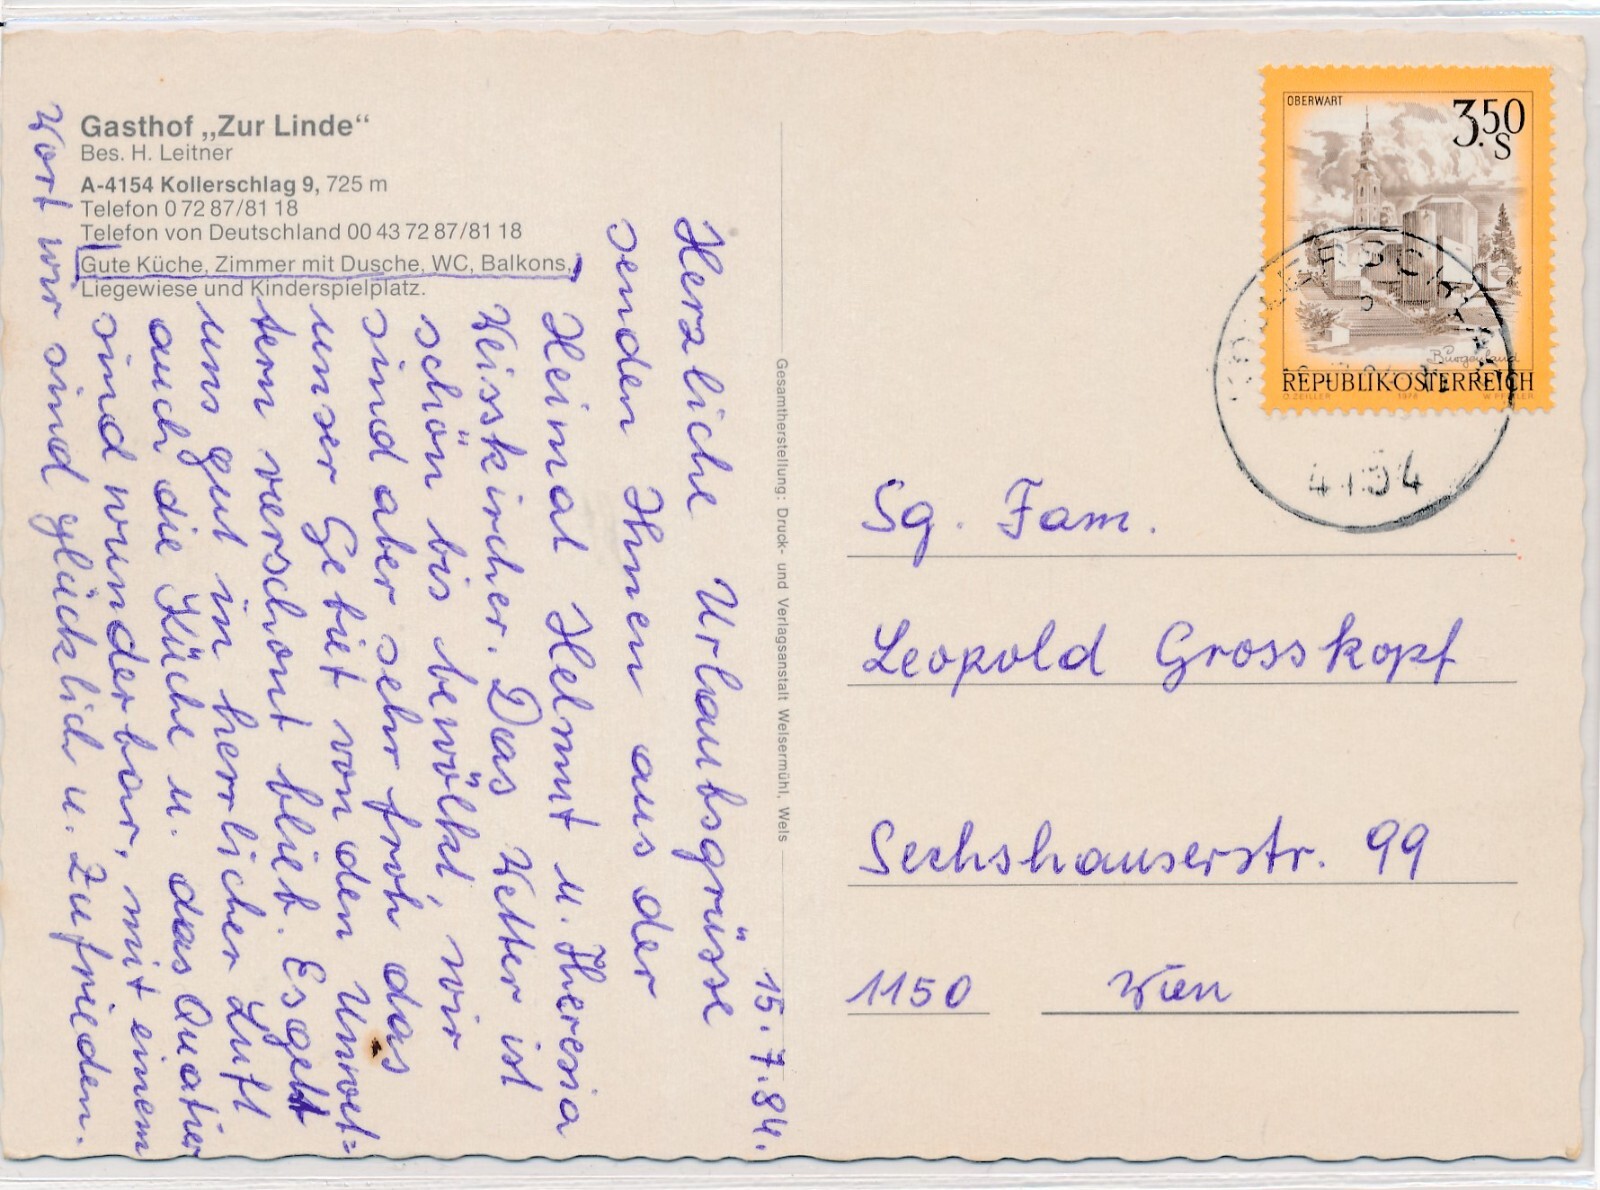 Gasthof „Zur Linde“
Bes. H. Leitner
A-4154 Kollerschlag 9, 725 m
Telefon 0 72 87/81 18
Telefon von Deutschland 00 43 72 87/81 18
Gute Küche, Zimmer mit Dusche, WC, Balkons,
Liegewiese und Kinderspielplatz.
15.7.84.
Herzliche Urlaubsgrüsse
senden Ihnen aus der
Heimat Helmut u. Theresia
Weisskircher. Das Wetter ist
schön bis bewölkt, wir
sind aber sehr froh das
unser Gebiet von den Unwet=
tern verschont blieb. Es geht
uns gut in herrlicher Luft
auch die Küche u. das Quatier
sind wunderbar, mit einem
Wort wir sind glücklich u. zufrieden.
Gesamtherstellung: Druck- und Verlagsanstalt Welsermühl, Wels
OBERWART
3.50
S
Burgenland
REPUBLIK ÖSTERREICH
O. ZEILLER 1978 W. PFEILER
KOLLERSCHLAG
4154
Sg. Fam.
Leopold Grosskopf
Sechshauserstr. 99
1150 Wien